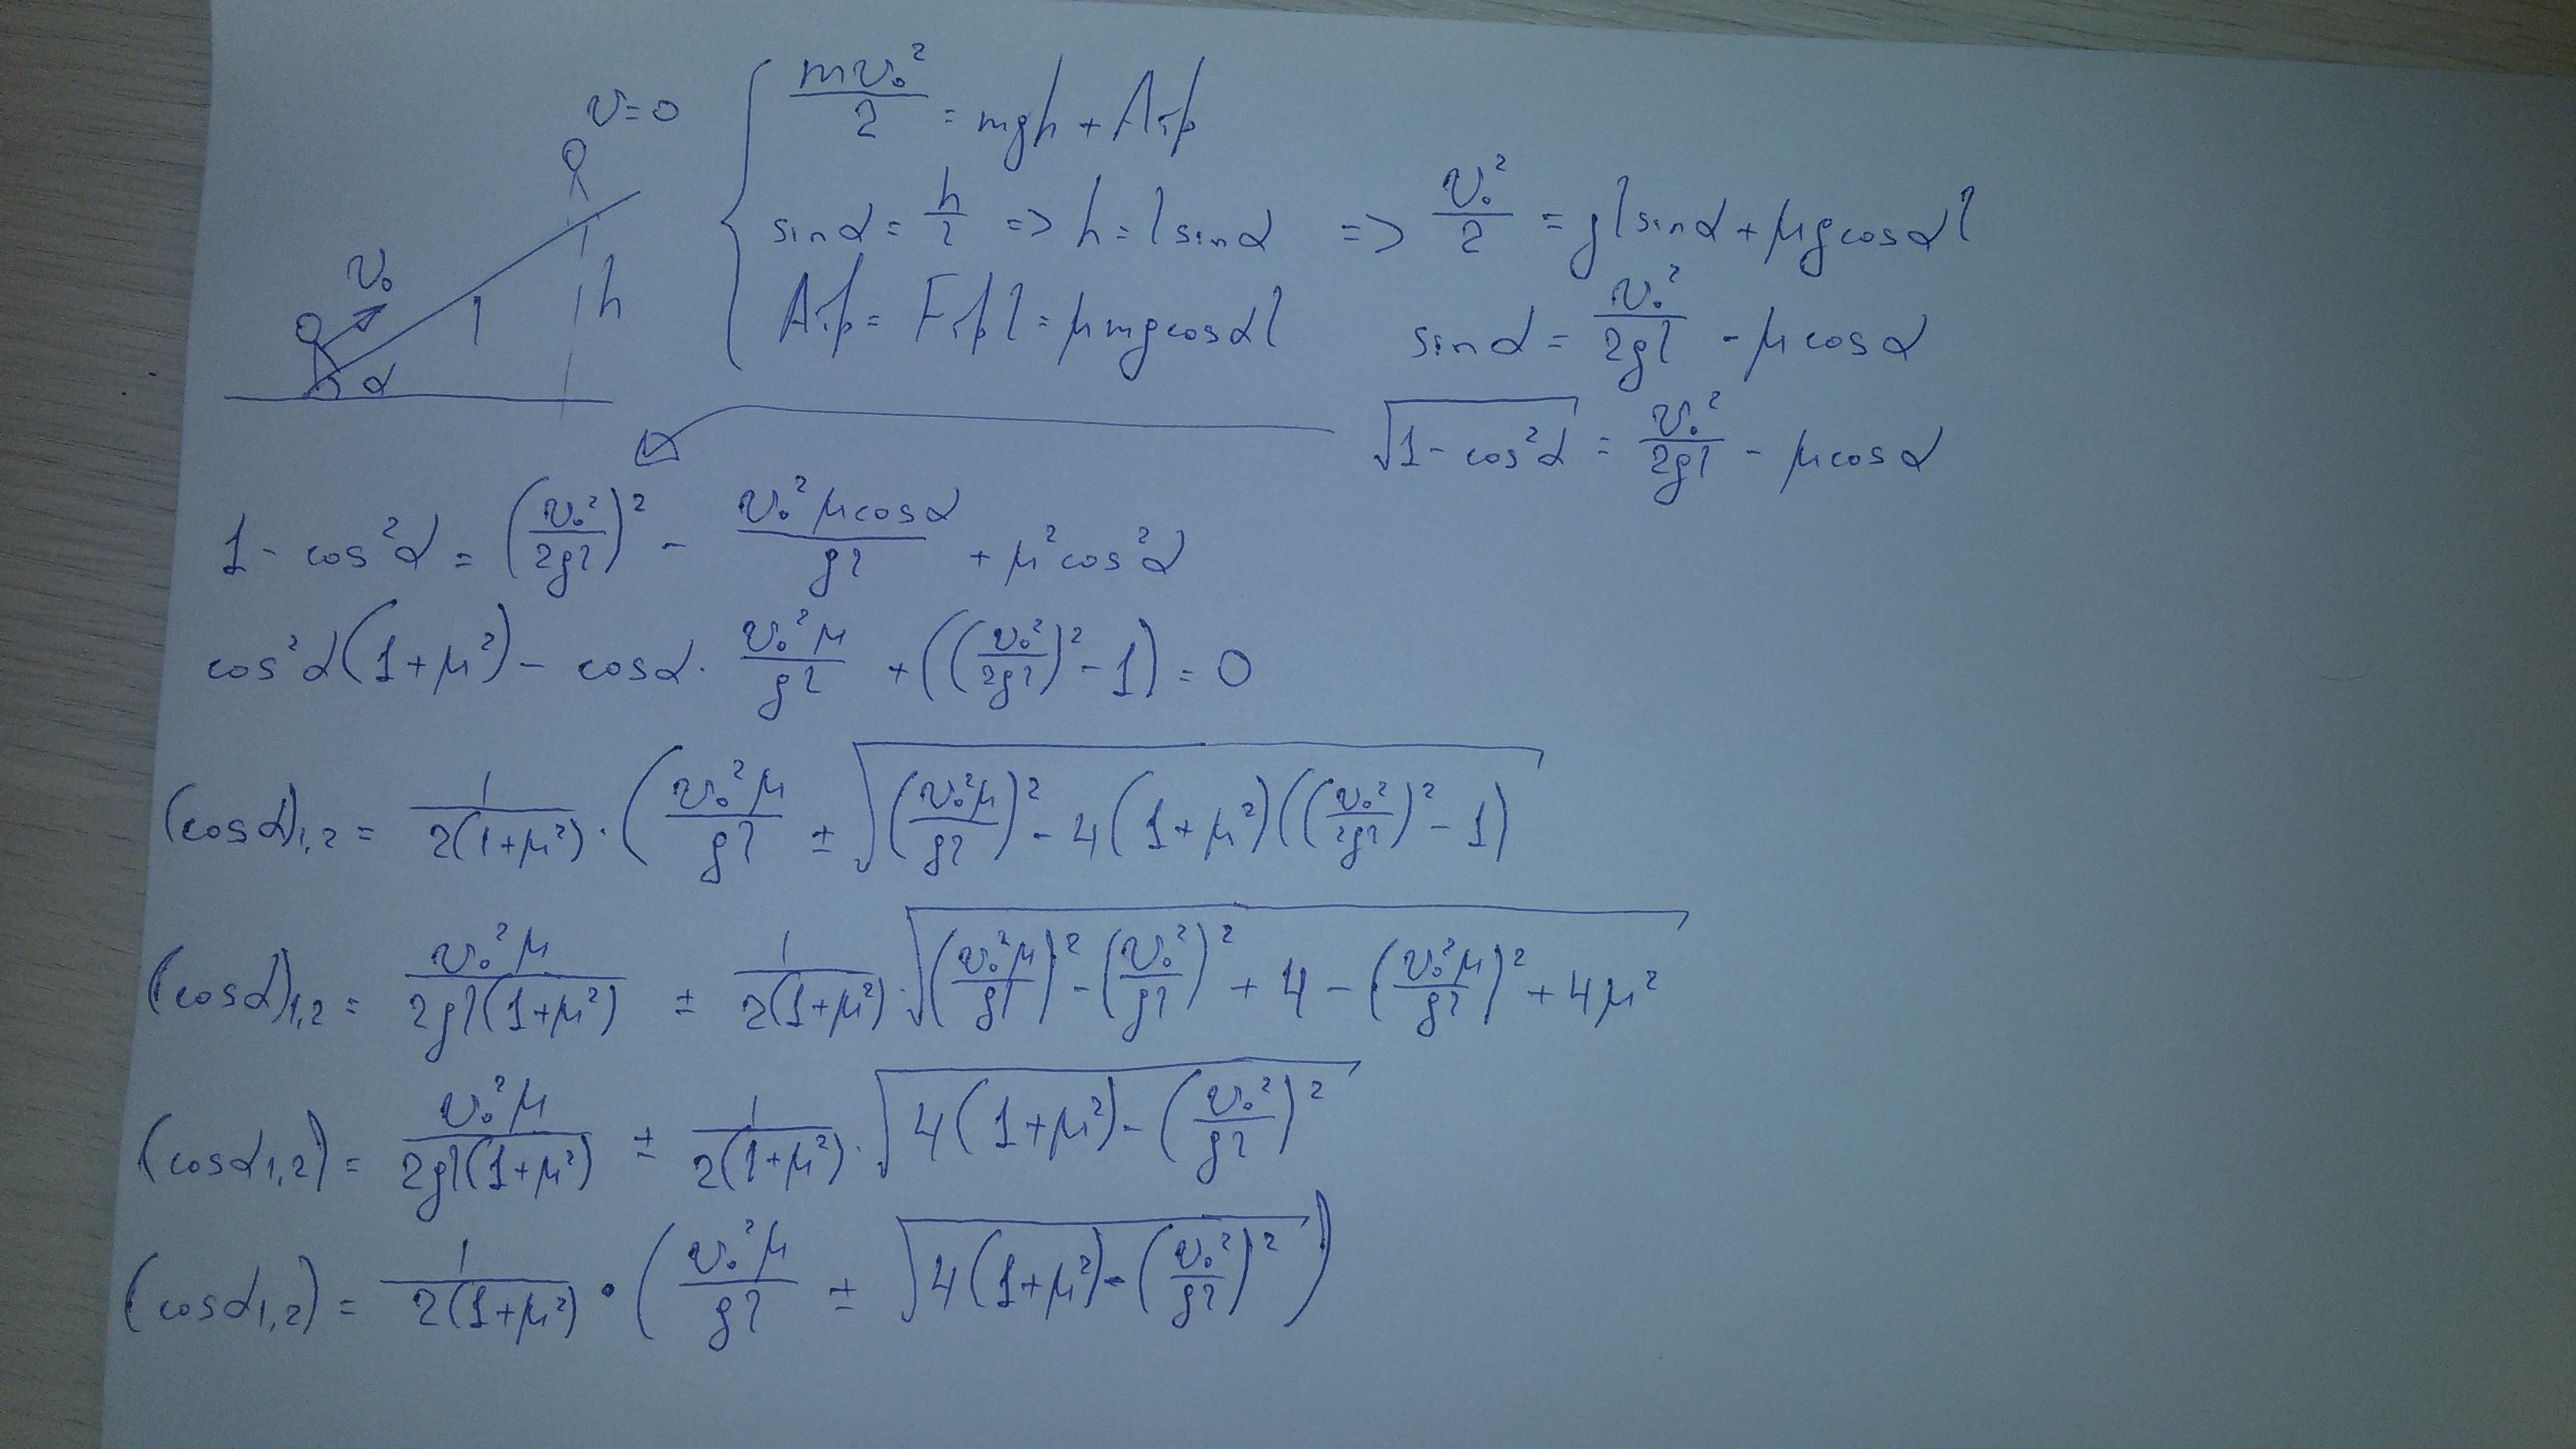 v=0
v₀
l
h
α
mv₀²/2 = mgh + Aтр
sinα = h/l => h = l sinα => v₀²/2 = gl sinα + μg cosα l
Aтр = Fтр l = μmg cosα l
sinα = v₀²/2gl - μcosα
√(1 - cos²α) = v₀²/2gl - μcosα
1 - cos²α = (v₀²/2gl)² - v₀²μcosα/gl + μ²cos²α
cos²α(1+μ²) - cosα · v₀²μ/gl + ((v₀²/2gl)² - 1) = 0
(cosα)₁,₂ = 1/2(1+μ²) · (v₀²μ/gl ± √((v₀²μ/gl)² - 4(1+μ²)((v₀²/2gl)² - 1)
(cosα)₁,₂ = v₀²μ/2gl(1+μ²) ± 1/2(1+μ²) · √((v₀²μ/gl)² - (v₀²/gl)² + 4 - (v₀²μ/gl)² + 4μ²
(cosα₁,₂) = v₀²μ/2gl(1+μ²) ± 1/2(1+μ²) · √(4(1+μ²) - (v₀²/gl)²
(cosα₁,₂) = 1/2(1+μ²) · (v₀²μ/gl ± √(4(1+μ²) - (v₀²/gl)²)